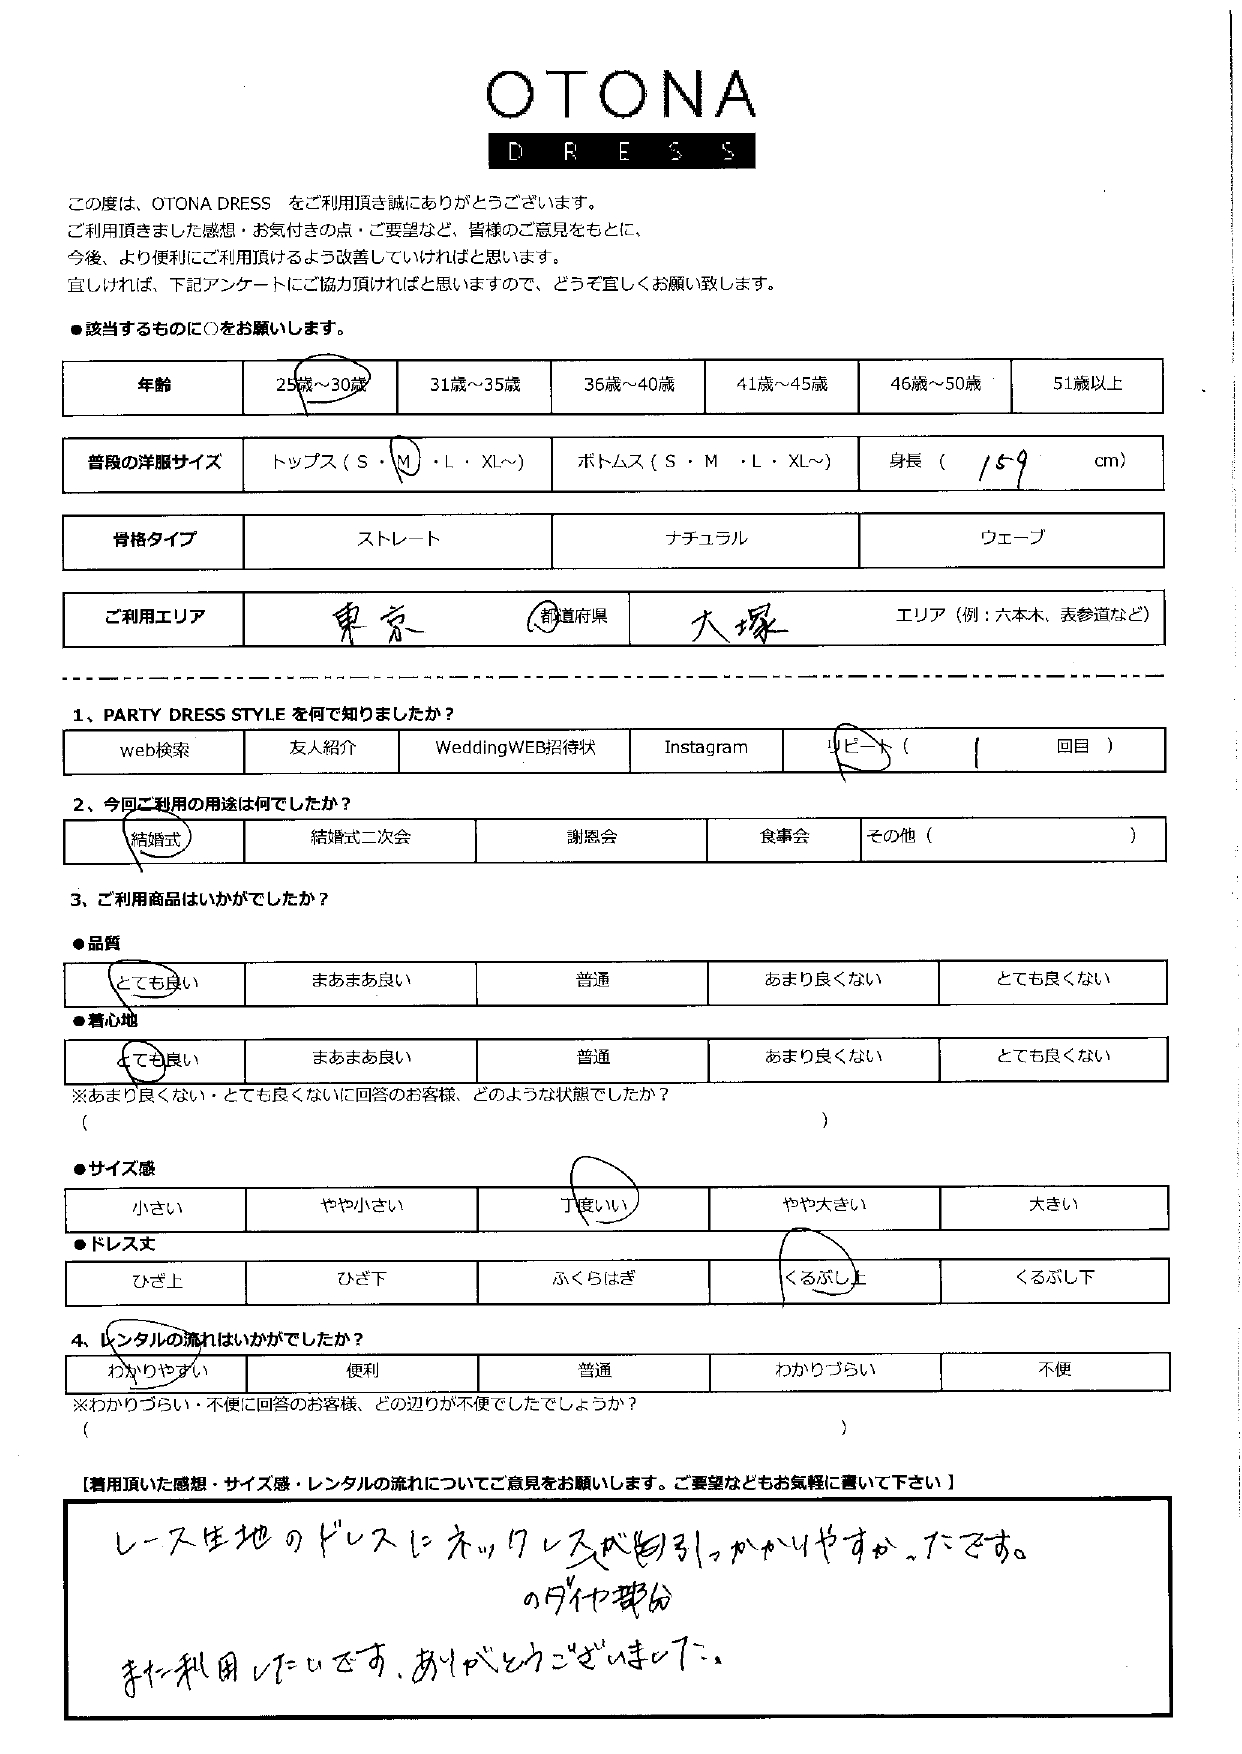 OTONA
DRESS
この度は、OTONA DRESS をご利用頂き誠にありがとうございます。
ご利用頂きました感想・お気付きの点・ご要望など、皆様のご意見をもとに、
今後、より便利にご利用頂けるよう改善していければと思います。
宜しければ、下記アンケートにご協力頂ければと思いますので、どうぞ宜しくお願い致します。
●該当するものに○をお願いします。
年齢 25歳～30歳 31歳～35歳 36歳～40歳 41歳～45歳 46歳～50歳 51歳以上
普段の洋服サイズ トップス ( S ・ M ・ L ・ XL～) ボトムス ( S ・ M ・ L ・ XL～) 身長 ( 159 cm)
骨格タイプ ストレート ナチュラル ウェーブ
ご利用エリア 東京 都道府県 大塚 エリア（例：六本木、表参道など）
1、PARTY DRESS STYLE を何で知りましたか？
web検索 友人紹介 WeddingWEB招待状 Instagram リピート ( 1 回目 )
2、今回ご利用の用途は何でしたか？
結婚式 結婚式二次会 謝恩会 食事会 その他 ( )
3、ご利用商品はいかがでしたか？
●品質
とても良い まあまあ良い 普通 あまり良くない とても良くない
●着心地
とても良い まあまあ良い 普通 あまり良くない とても良くない
※あまり良くない・とても良くないに回答のお客様、どのような状態でしたか？
( )
●サイズ感
小さい やや小さい 丁度いい やや大きい 大きい
●ドレス丈
ひざ上 ひざ下 ふくらはぎ くるぶし上 くるぶし下
4、レンタルの流れはいかがでしたか？
わかりやすい 便利 普通 わかりづらい 不便
※わかりづらい・不便に回答のお客様、どの辺りが不便でしたでしょうか？
( )
【着用頂いた感想・サイズ感・レンタルの流れについてご意見をお願いします。ご要望などもお気軽に書いて下さい 】
レース生地のドレスにネックレスが引っかかりやすかったです。
のダイヤ部分
また利用したいです、ありがとうございました。